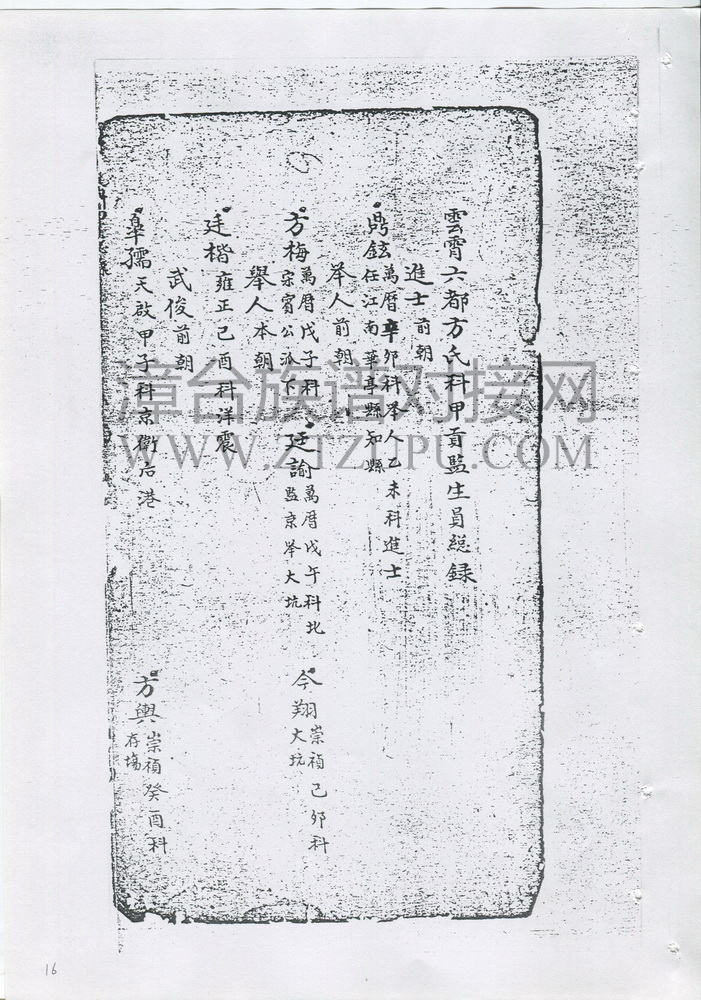 雲霄六都方氏科甲貢監生員総録
進士前朝
鼎鉉萬曆辛卯科举人乙未科進士
任江南華亭縣知縣
举人前朝
方梅萬曆戊子科
宗賓公派下
廷諭萬曆戊午科北
监京举大坑
今翔崇禎己卯科
大坑
舉人本朝
廷楷雍正己酉科洋震
武俊前朝
皐孺天啟甲子科京衛后港
方輿崇禎癸酉科
存塲
漳台族谱对接网
WWW.ZTZUPU.COM
16